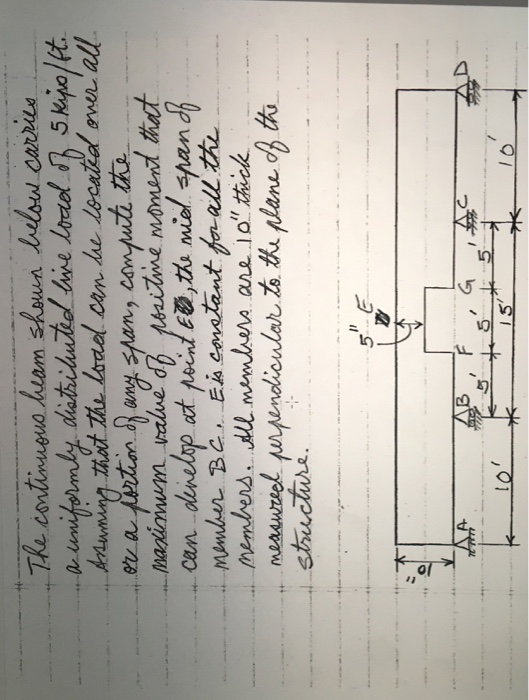 The continuous beam shown below carries
a uniformly distributed live load of 5 kips/ft.
Assuming that the load can be located over all
or a portion of any span, compute the
maximum value of positive moment that
can develop at point E, the mid span of
member BC. E is constant for all the
members. All members are 10" thick
measured perpendicular to the plane of the
structure.
5" E
10"
A B F G C D
5' 5' 5'
10' 15' 10'